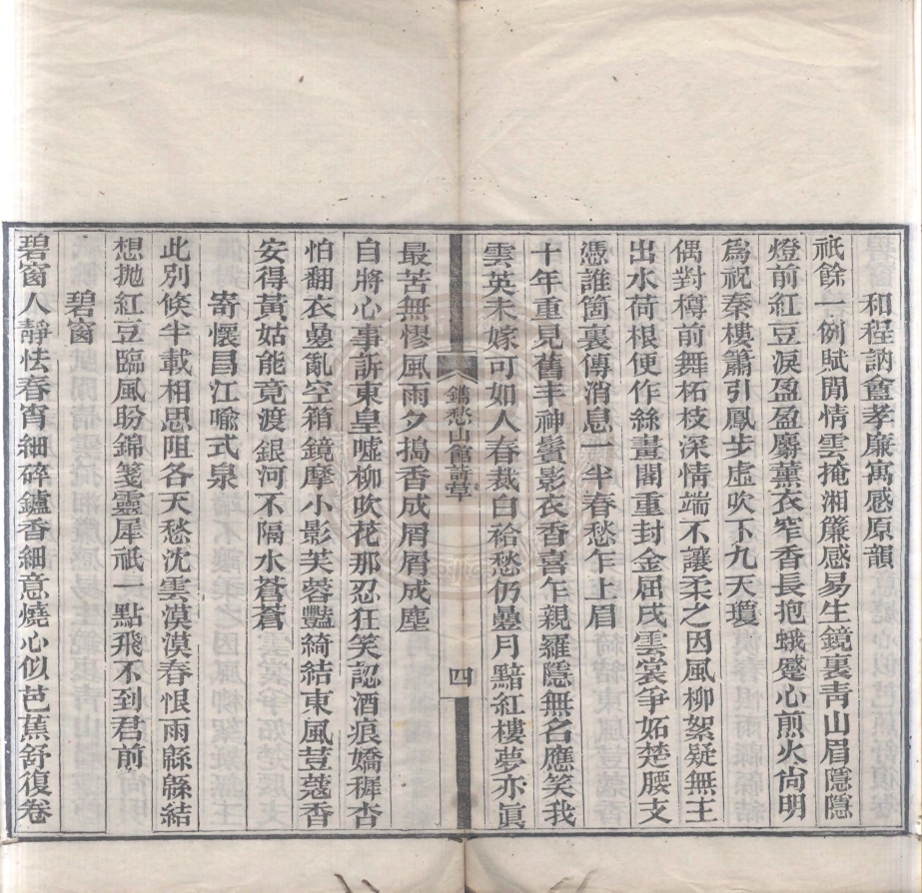 和程訥盦孝廉寓感原韻
祇餘一例賦閒情雲掩湘簾感易生鏡裏靑山眉隱隱
燈前紅豆淚盈盈麝薰衣窄香長抱蛾蹙心煎火尙明
爲祝秦樓簫引鳳步虛吹下九天瓊
偶對樽前舞柘枝深情端不讓柔之因風柳絮疑無主
出水荷根便作絲畫閣重封金屈戌雲裳爭妬楚腰支
憑誰箇裏傳消息一半春愁乍上眉
十年重見舊丰神鬢影衣香喜乍親羅隱無名應笑我
雲英未嫁可如人春裁白袷愁仍疊月黯紅樓夢亦眞
鑄愁山館詩草
四
最苦無憀風雨夕搗香成屑屑成塵
自將心事訴東皇噓柳吹花那忍狂笑認酒痕嬌穉杏
怕翻衣疊亂空箱鏡摩小影芙蓉豔綺結東風荳蔻香
安得黃姑能竟渡銀河不隔水蒼蒼
寄懷昌江喻式泉
此別倐半載相思阻各天愁沈雲漠漠春恨雨緜緜結
想拋紅豆臨風盼錦箋靈犀祇一點飛不到君前
碧窗
碧窗人靜怯春宵細碎鑪香細意燒心似芭蕉舒復卷